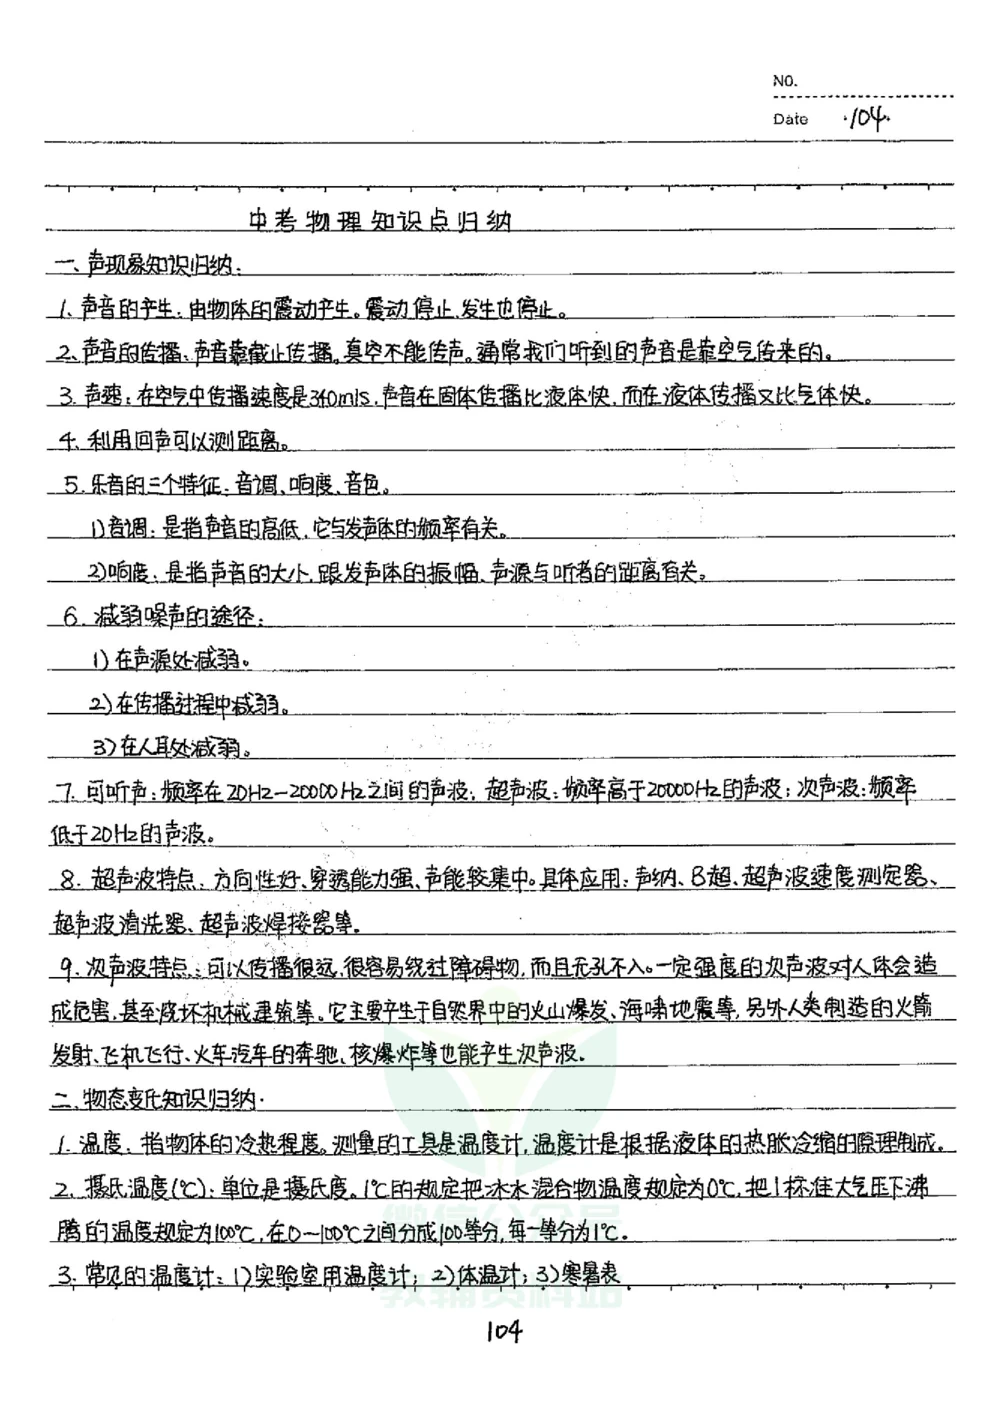 NO.
Date ·104·
中考物理知识点归纳
一、声现象知识归纳:
1、声音的产生:由物体的震动产生。震动停止,发生也停止。
2、声音的传播:声音靠截止传播。真空不能传声。通常我们听到的声音是靠空气传来的。
3. 声速:在空气中传播速度是340m/s,声音在固体传播比液体快,而在液体传播又比气体快。
4、利用回声可以测距离。
5.乐音的三个特征:音调、响度、音色。
1)音调:是指声音的高低,它与发声体的频率有关。
2)响度:是指声音的大小,跟发声体的振幅、声源与听者的距离有关。
6. 减弱噪声的途径:
1)在声源处减弱。
2)在传播过程中减弱。
3)在人耳处减弱。
7. 可听声:频率在20Hz—20000Hz之间的声波;超声波:频率高于20000Hz的声波;次声波:频率
低于20Hz的声波。
8. 超声波特点:方向性好、穿透能力强、声能较集中。具体应用:声纳、B超、超声波速度测定器、
超声波清洗器、超声波焊接器等。
9. 次声波特点:可以传播很远,很容易绕过障碍物,而且无孔不入。一定强度的次声波对人体会造
成危害,甚至破坏机械建筑等。它主要产生于自然界中的火山爆发、海啸地震等,另外人类制造的火箭
发射、飞机飞行、火车汽车的奔驰、核爆炸等也能产生次声波.
二、物态变化知识归纳.
1. 温度:指物体的冷热程度。测量的工具是温度计,温度计是根据液体的热胀冷缩的原理制成。
2. 摄氏温度(℃):单位是摄氏度。1℃的规定把冰水混合物温度规定为0℃,把1标准大气压下沸
腾的温度规定为100℃,在0~100℃之间分成100等分,每一等分为1℃.
3. 常见的温度计:1)实验室用温度计;2)体温计;3)寒暑表
教辅资料站
104